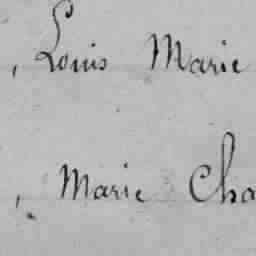 , Louis Marie
, Marie Cha